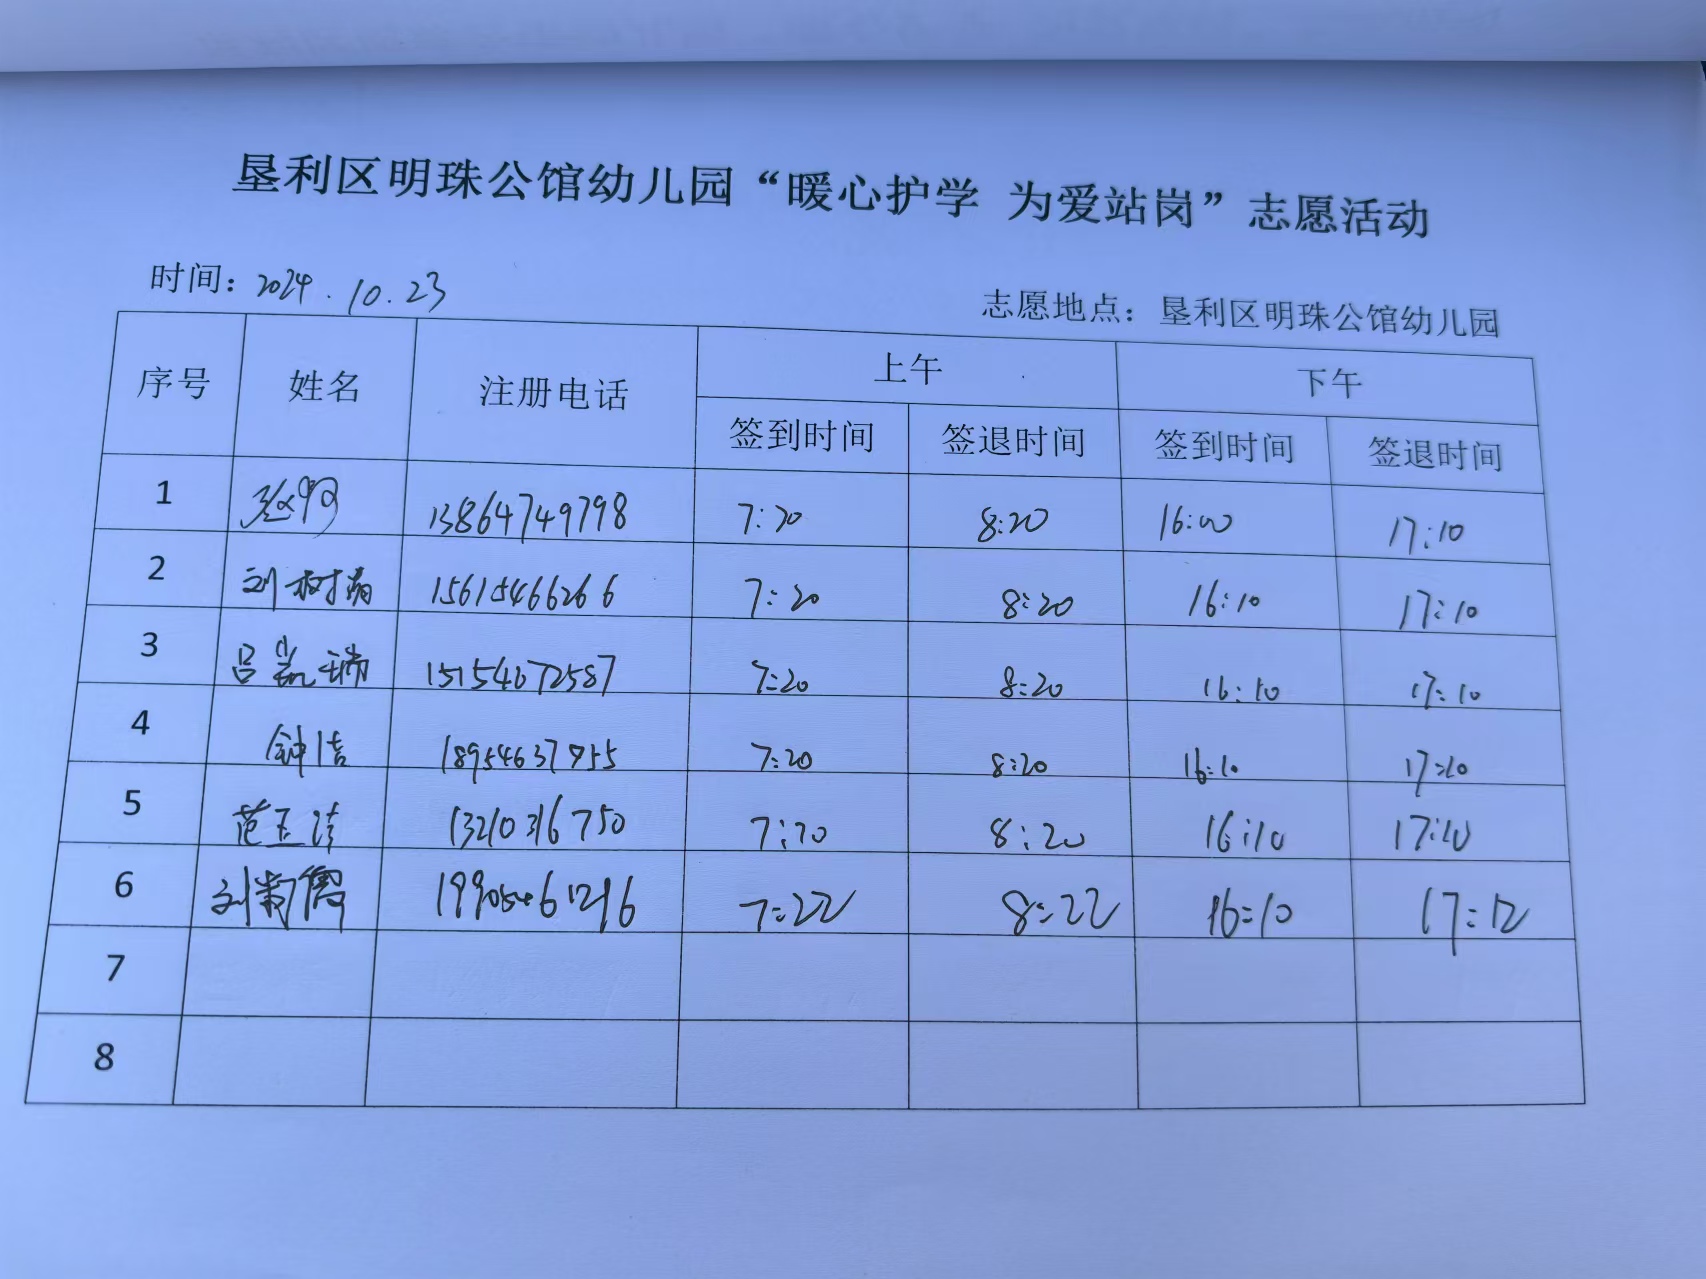 垦利区明珠公馆幼儿园“暖心护学 为爱站岗”志愿活动
时间：2024.10.23
志愿地点：垦利区明珠公馆幼儿园
序号 姓名 注册电话 上午 下午
签到时间 签退时间 签到时间 签退时间
1 13864749798 7:20 8:20 16:00 17:10
2 刘树 15615466266 7:20 8:20 16:10 17:10
3 吕凯瑞 15154672587 7:20 8:20 16:10 17:10
4 钟洁 7:20 8:20 16:10 17:10
5 范玉洁 13210316750 7:20 8:20 16:10 17:10
6 刘 7:22 8:22 16:10 17:12
7
8